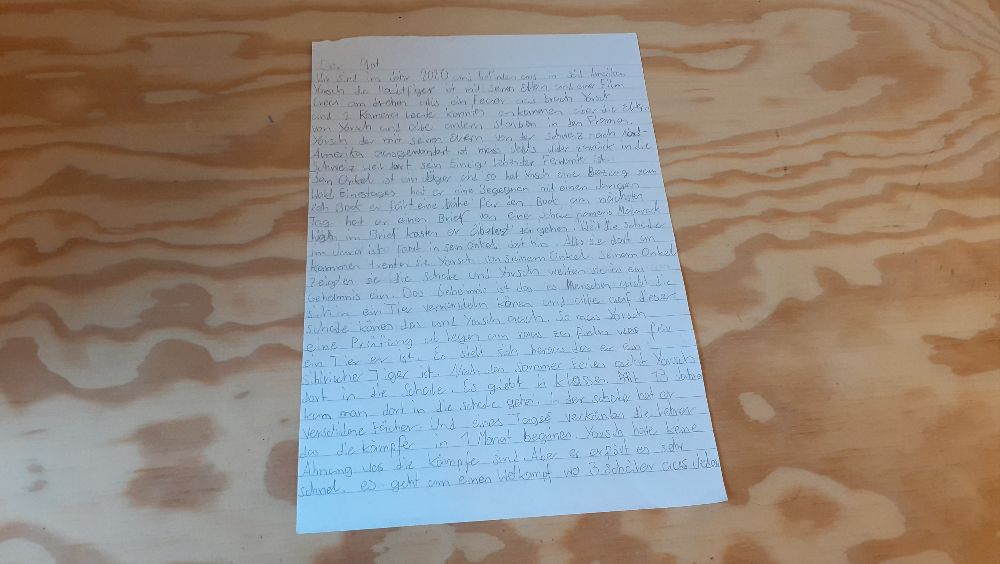 Wir sind im Jahr 2020 und befinden uns in süd Amerika
Yorsch die Hautfiger ist mit seinen Eltern und einer Film
Crew am drehen als ein feuer aus brach Yorsch
und 2 Kamera leute konnten entkommen aber die Eltern
von Yorsch und alle andern starben in den Flamen.
Yorsch der mit seinen Eltern von der schweiz nach Nord-
Amerika ausgewandert ist muss jetzt wider zurück in die
Schweiz weil dort sein Einzige lebender Ferwante ist.
Sein Onkel ist ein Jäger und so hat Yorsch eine Bezung zum
Wald. Einestages hat er eine Begegnen mit einen jungen
reh Bock er fült eine nähe für den Bock am nächsten
Tag hat er einen Brief von einer schule namens
im Brief kasten er übelegt zu gehen. Weil die schule
im ist fart in sein Onkel dort hin. Als sie dort an
kommen trenten sie Yorsch von seinem Onkel. Seinem Onkel
zeigten sie die schule und Yorsch weihten sie in ein
Geheimnis ein. Das Geheimnis ist das es Menschen giebt die
sich in ein Tier verwandeln könen und alle auf dieser
schule könen das und Yorsch auch. So mus Yorsch
eine Prüfung ab legen um raus zu finden was für
ein Tier er ist. Es stelt sich heraus das er ein
sibirischer Tiger ist. Nach den sommer ferien geht Yorsch
dort in die Schule. Es giebt Klassen. Mit Jahren
kann man dort in die schule gehen. in der schule hat er
verschidene fächer. Und eines Tages verkünten die Lehrer
das die kämpfe in 1 Monat begonen. Yorsch hate keine
Ahnung was die kämpfe sind. Aber er erfärt es sehr
schnel. es geht um einen Wetkampf wo 3 schüler aus jeder